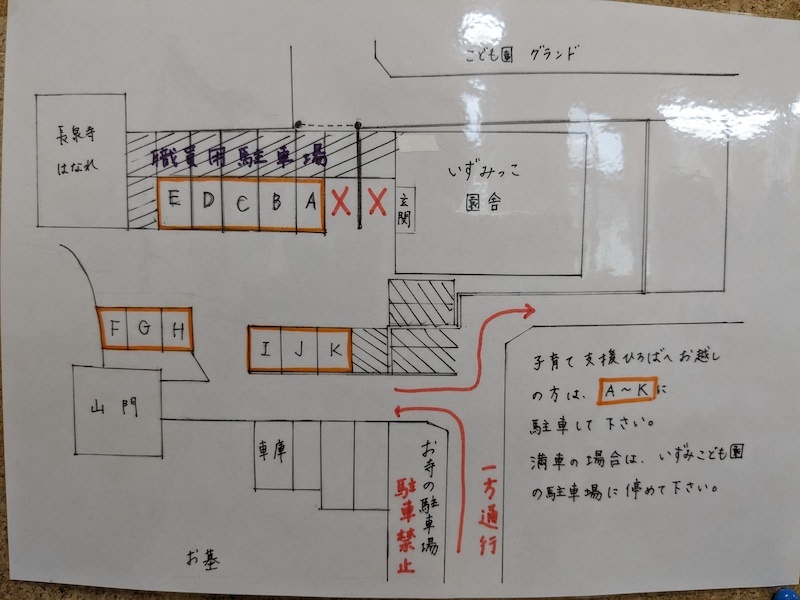 こども園 グランド
長泉寺
はなれ
職員用駐車場
E D C B A X X
玄関
いずみっこ
園舎
F G H
I J K
山門
車庫
お寺の駐車場
駐車禁止
一方通行
お墓
子育て支援ひろばへお越し
の方は、A～Kに
駐車して下さい。
満車の場合は、いずみこども園
の駐車場に停めて下さい。